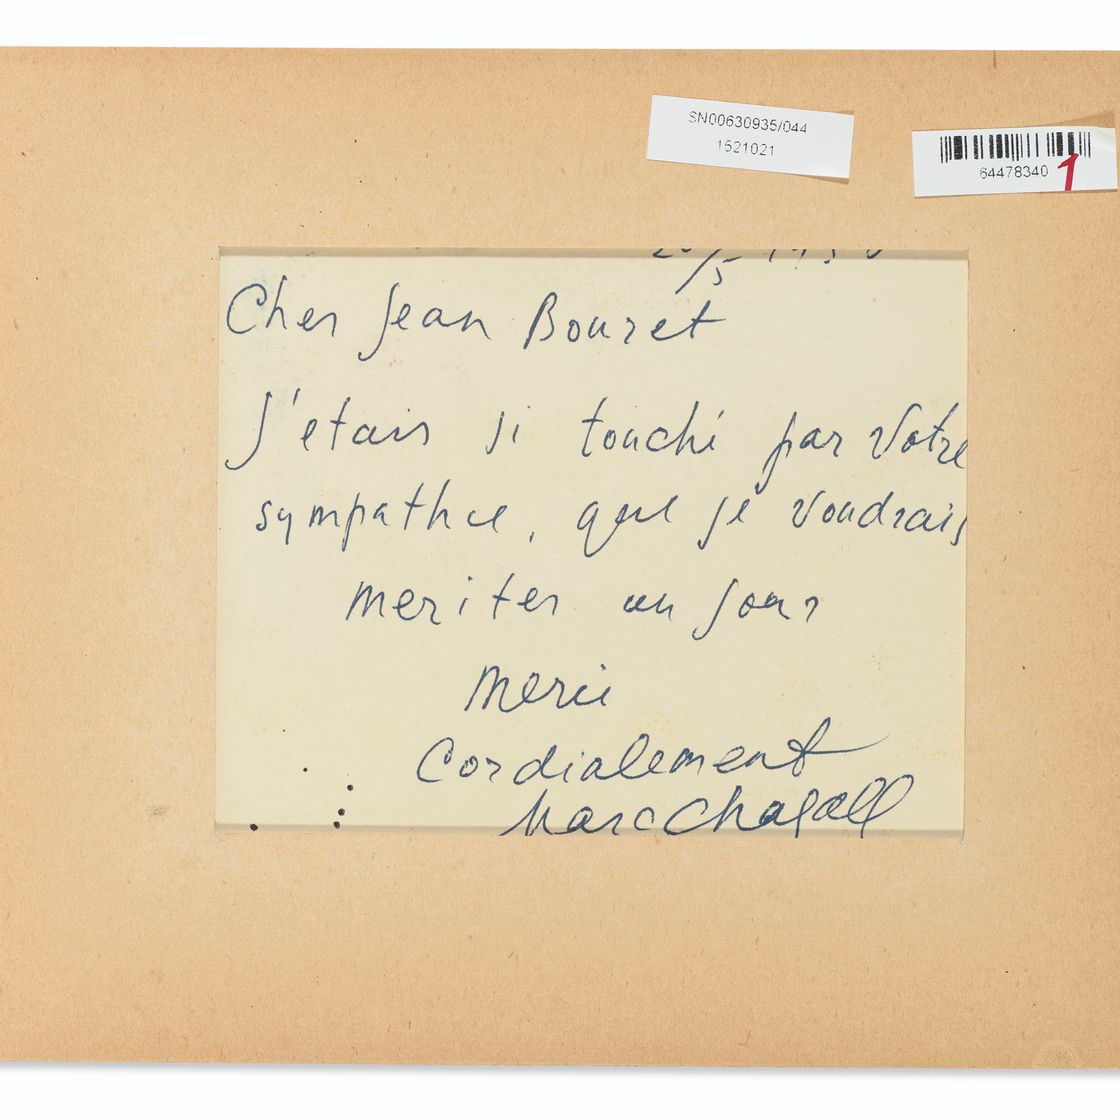 SN00630935/044
1521021
64478340
1
Cher Jean Bouret
J'etais si touché par votre
sympathie, que je voudrais
meriter un jour
Merci
Cordialement
Marc Chagall